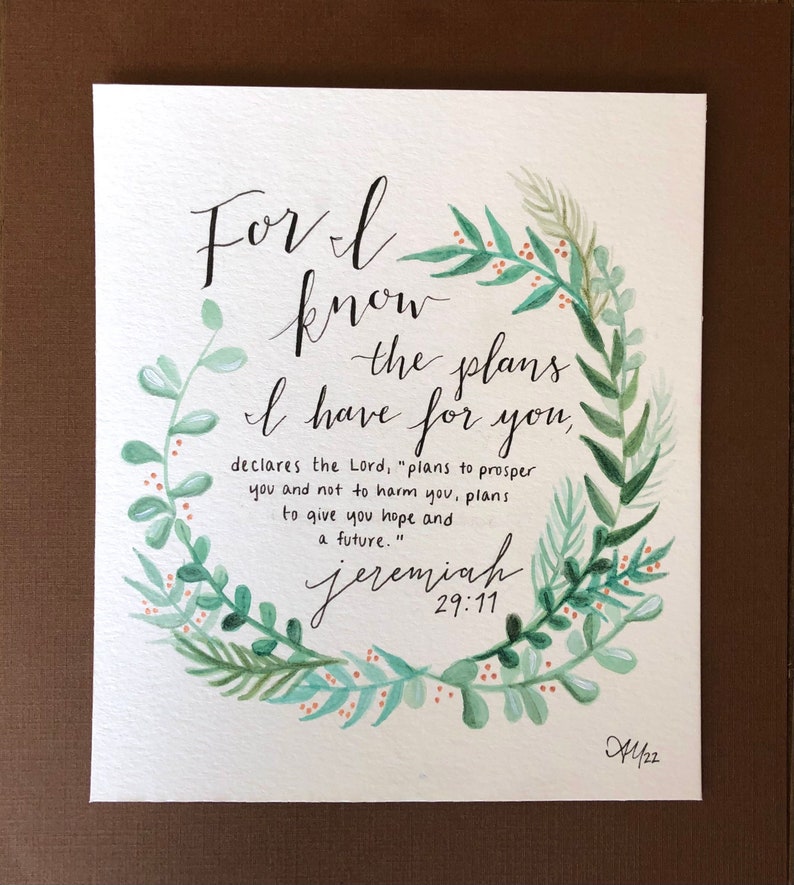 For I
know
the plans
I have for you,
declares the Lord, "plans to prosper
you and not to harm you, plans
to give you hope and
a future."
jeremiah
29:11
AY22